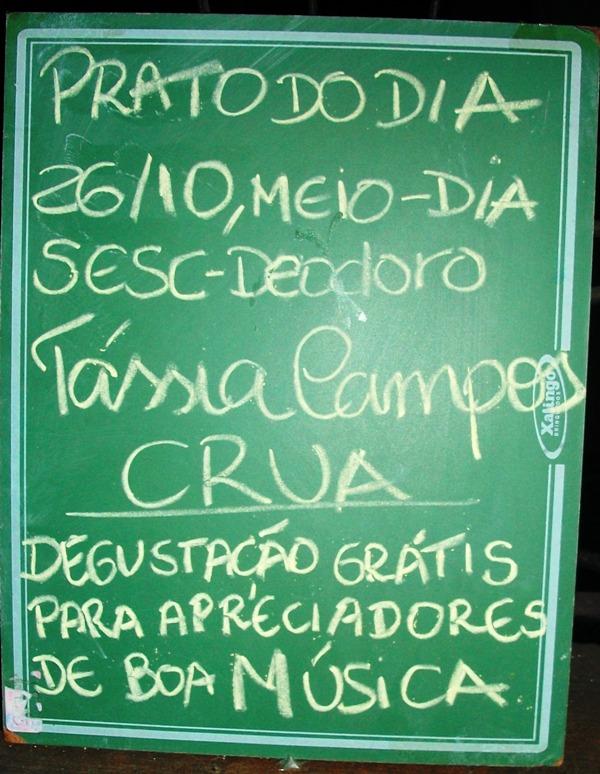 PRATO DO DIA
26/10, MEIO-DIA
SESC-Deodoro
Tássia Campos
Xalingo
BRINQUEDOS
CRUA
DEGUSTAÇÃO GRÁTIS
PARA APRECIADORES
DE BOA MÚSICA